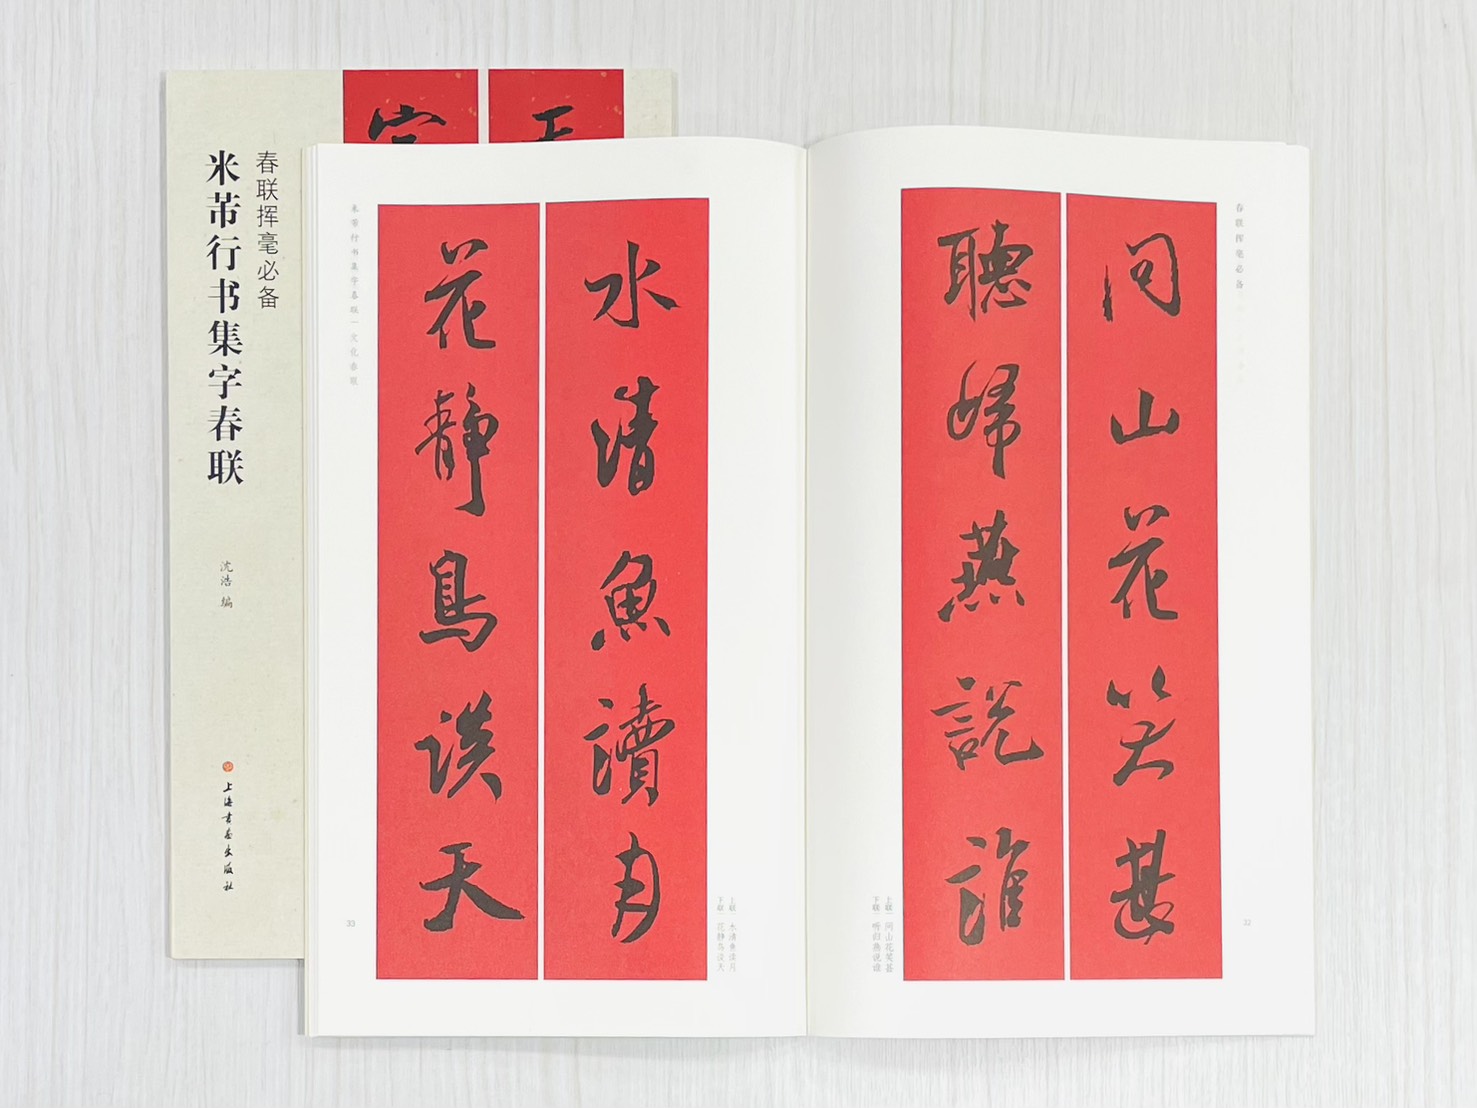 春联挥毫必备
米芾行书集字春联
沈浩 编
上海书画出版社
春联挥毫必备
問山花笑甚
聽歸燕説誰
上联 问山花笑甚
下联 听归燕说谁
32
水清魚讀月
花靜鳥談天
上联 水清鱼读月
下联 花静鸟谈天
米芾行书集字春联 文化春联
33